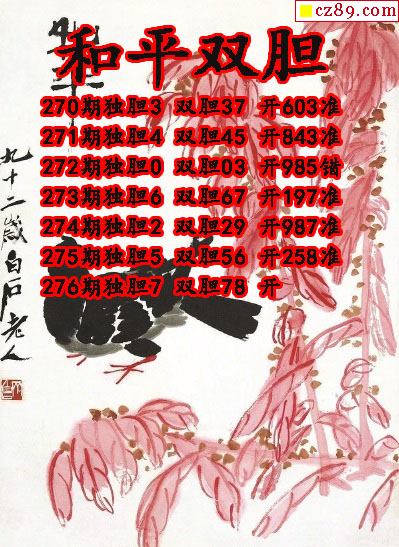 cz89.com
和平双胆
270期独胆3 双胆37 开603准
271期独胆4 双胆45 开843准
272期独胆0 双胆03 开985错
273期独胆6 双胆67 开197准
274期独胆2 双胆29 开987准
275期独胆5 双胆56 开258准
276期独胆7 双胆78 开
九十二歲白石老人